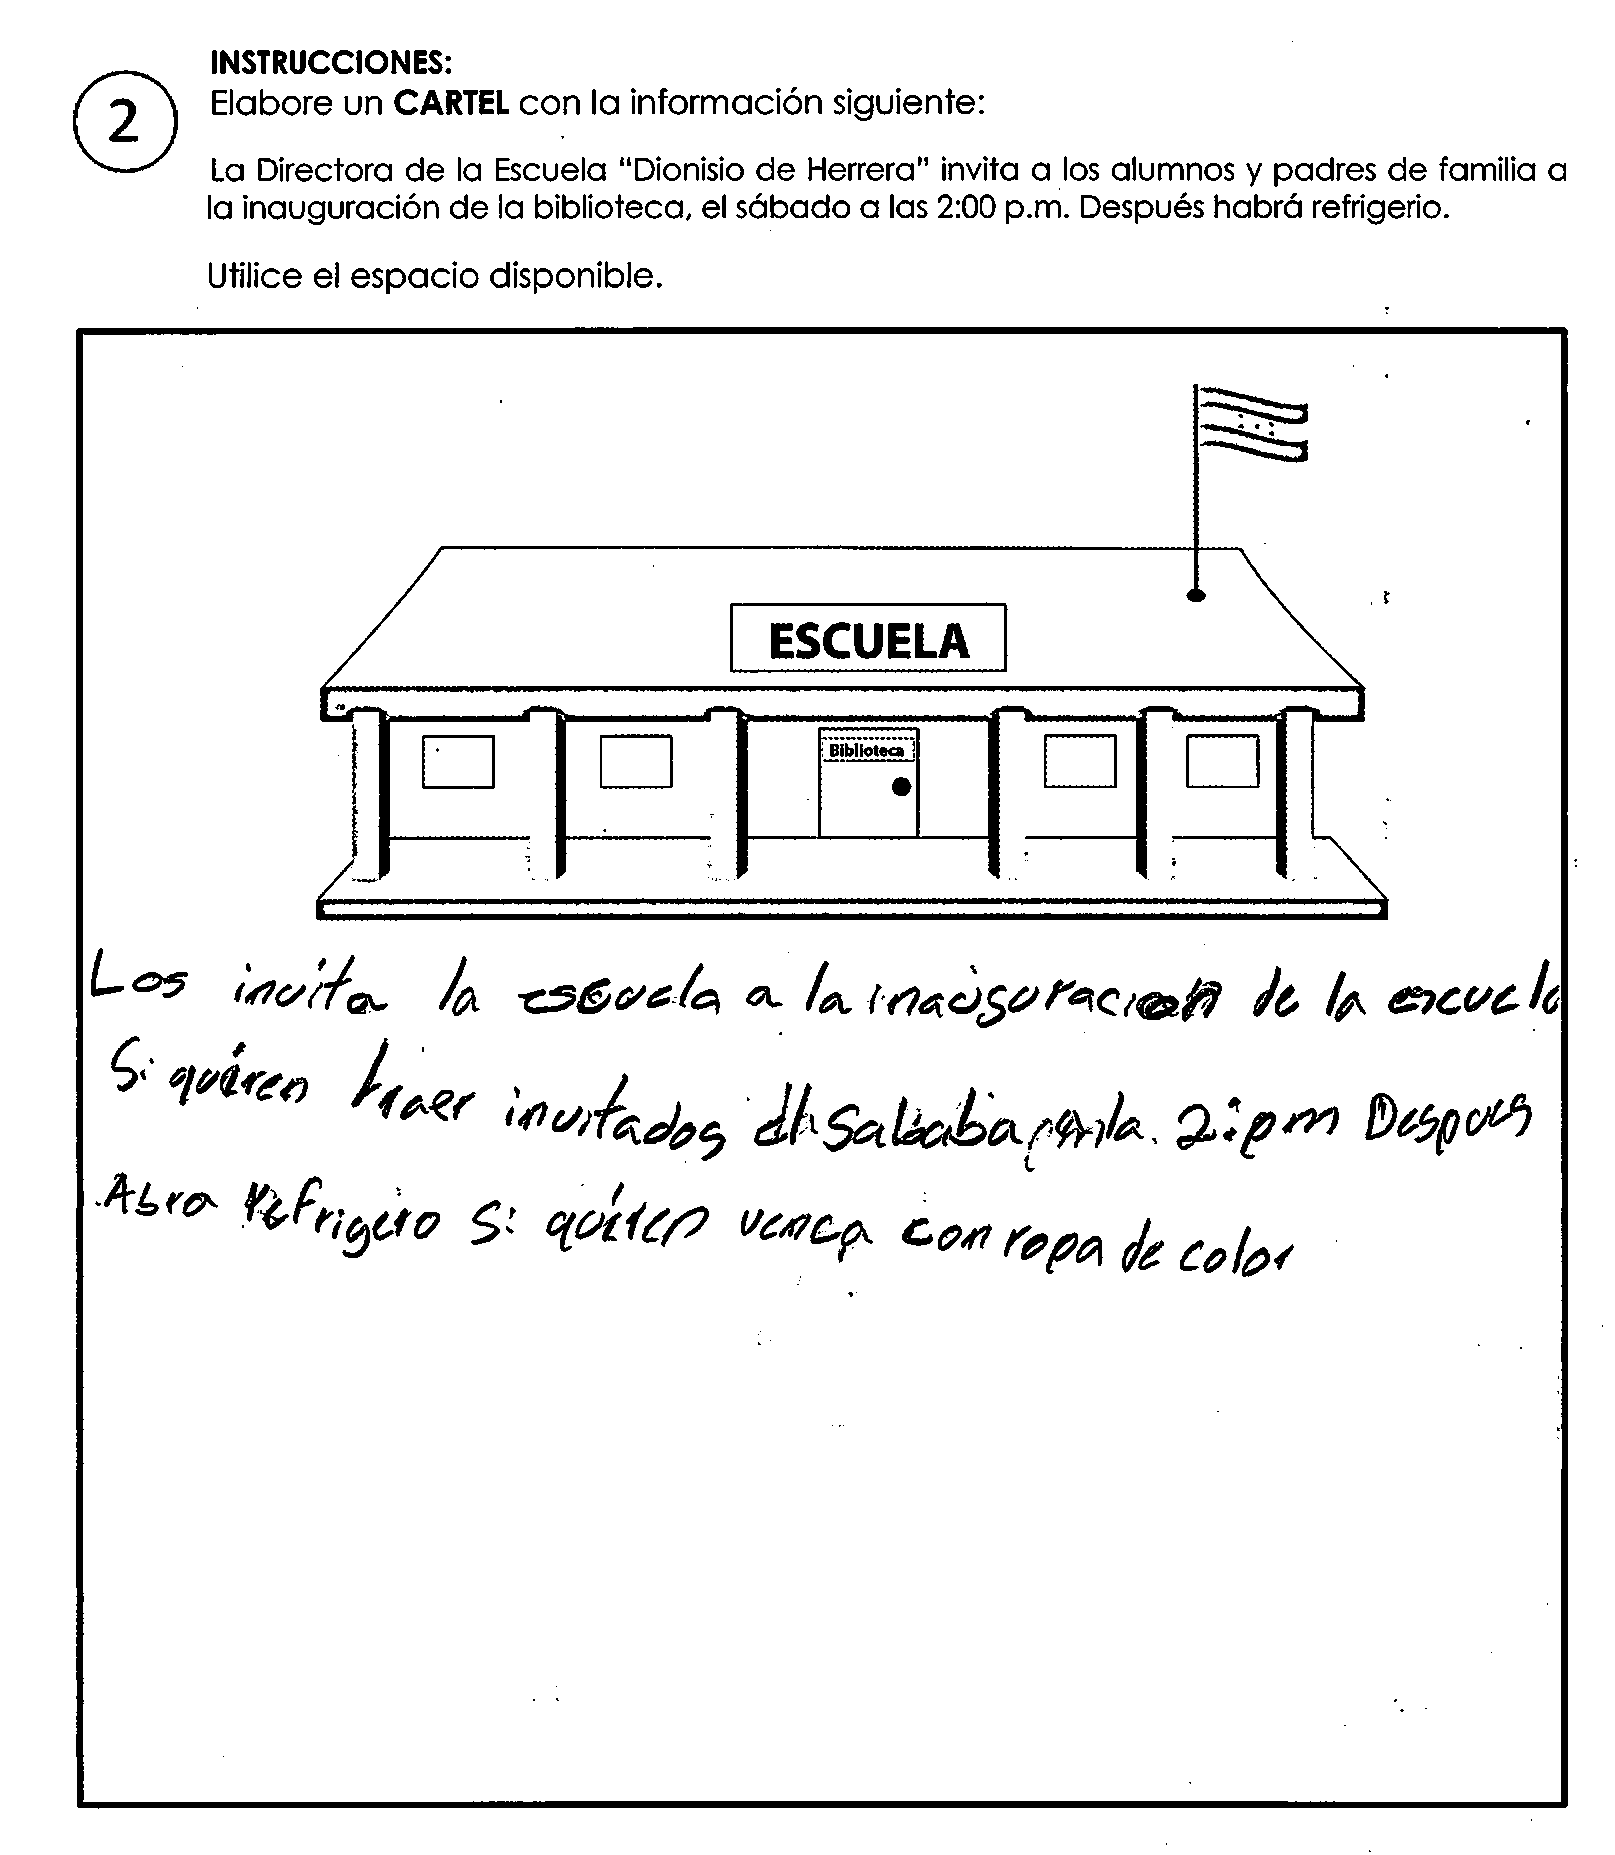 INSTRUCCIONES:
2
Elabore un CARTEL con la información siguiente:
La Directora de la Escuela "Dionisio de Herrera" invita a los alumnos y padres de familia a
la inauguración de la biblioteca, el sábado a las 2:00 p.m. Después habrá refrigerio.
Utilice el espacio disponible.
ESCUELA
Biblioteca
Los invita la escuela a la inauguracion de la escuela
Si quieren traer invitados el Sababa la 2:pm Despues
Abra Refrigero Si quieren venca con ropa de color